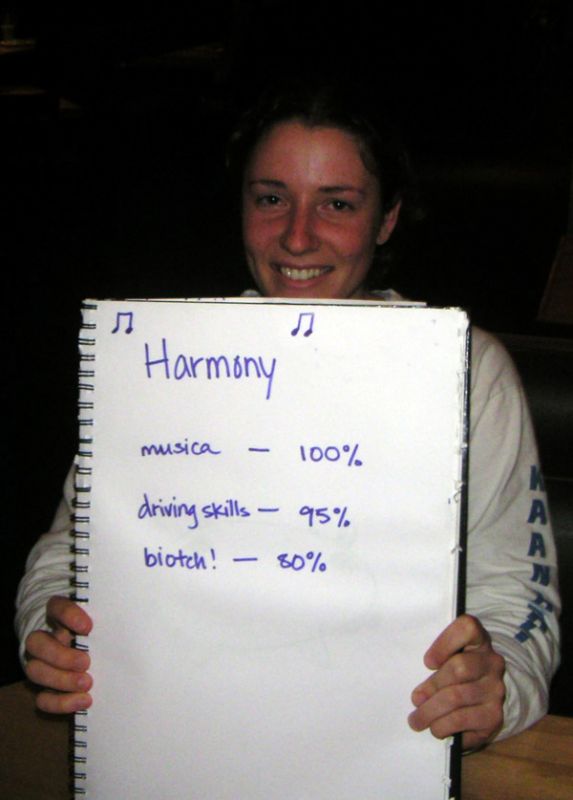 Harmony
musica — 100%
driving skills — 95%
biotch! — 80%